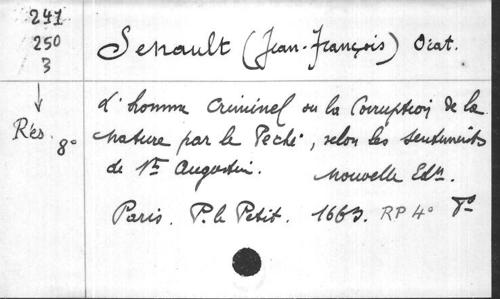 241
250
3
Rés. 8°
Senault (Jean-François) Orat.
L'homme Criminel ou la Corruption de la
nature par le Péché, selon les sentiments
de St Augustin. Nouvelle Edon.
Paris. P. le Petit. 1663. RP 4° 8°